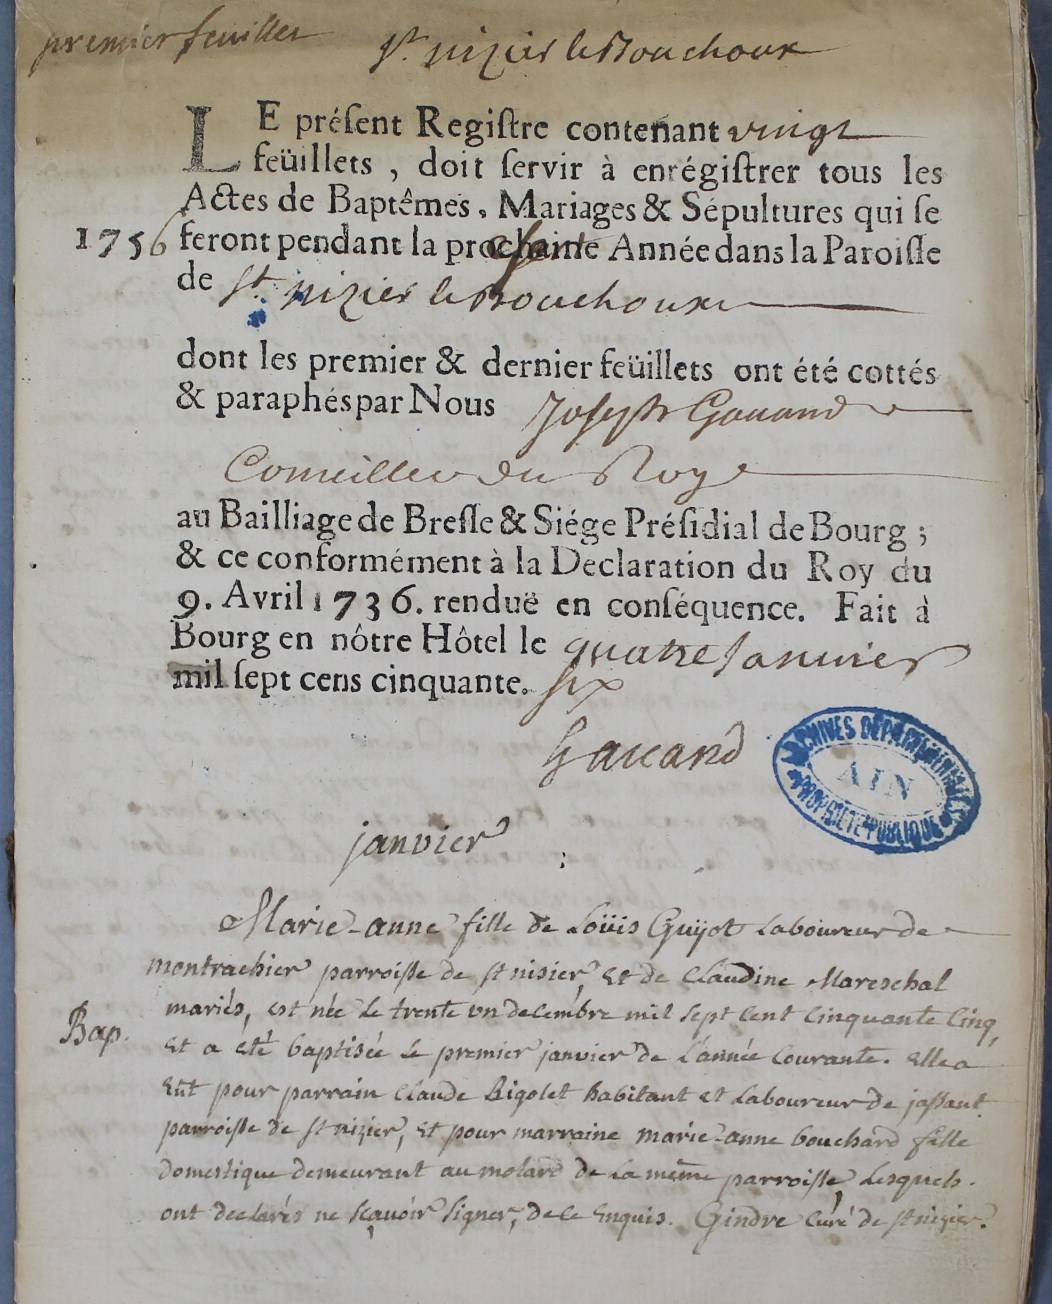 premier feuillet
st. nizier le Bouchoux
LE préſent Regiſtre contenant vingt
feüillets, doit ſervir à enrégiſtrer tous les
Actes de Baptêmes, Mariages & Sépultures qui ſe
1756 feront pendant la prochaine Année dans la Paroiſſe
de st. nizier le Bouchoux
dont les premier & dernier feüillets ont été cottés
& paraphés par Nous Joseph Gauand
Conseiller du Roy
au Bailliage de Breſſe & Siége Préſidial de Bourg ;
& ce conformément à la Déclaration du Roy du
9. Avril 1736. renduë en conſéquence. Fait à
Bourg en nôtre Hôtel le quatre Janvier
mil ſept cens cinquante. six
Gauand
ARCHIVES DÉPARTEMENTALES
AIN
PROPRIÉTÉ PUBLIQUE
janvier
Marie-anne fille de Loüis Guyot Laboureur de
montrachier parroisse de st nisier, et de Claudine Mareschal
mariés, est née le trente un decembre mil sept cent cinquante cinq,
Bap. et a eté baptisée le premier janvier de l'année courante. elle a
eût pour parrain Claude Bigolet habitant et Laboureur de jassant
parroisse de st nizier, et pour marraine marie-anne bouchard fille
domestique demeurant au molard de la même parroisse, Lesquels
ont declarés ne sçavoir signer, de ce enquis. Gindre Curé de st nizier.